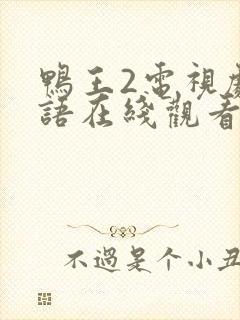 鴨王2電視劇
語在綫觀看
不過是个小丑